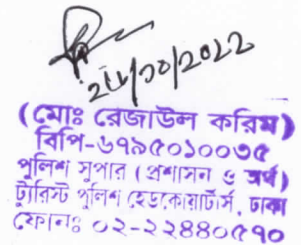 ২৬/১০/২০২২
(মোঃ রেজাউল করিম)
বিপি-৬৭৯৫০১০০৩৫
পুলিশ সুপার (প্রশাসন ও অর্থ)
ট্যুরিস্ট পুলিশ হেডকোয়ার্টার্স, ঢাকা
ফোনঃ ০২-২২৪৪০৫৭০